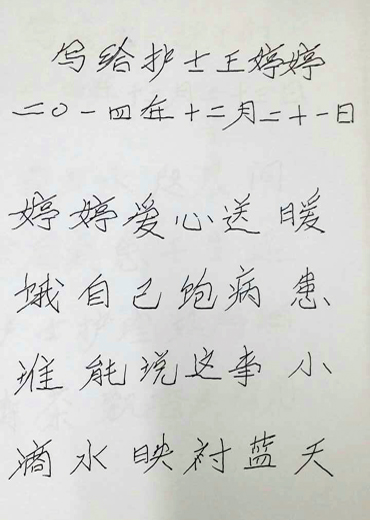 写给护士王婷婷
二〇一四年十二月二十一日
婷婷爱心送暖
饿自己饱病患
谁能说这事小
滴水映衬蓝天